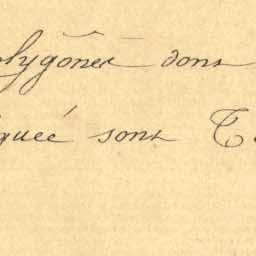 olygônes dont
quée sont T